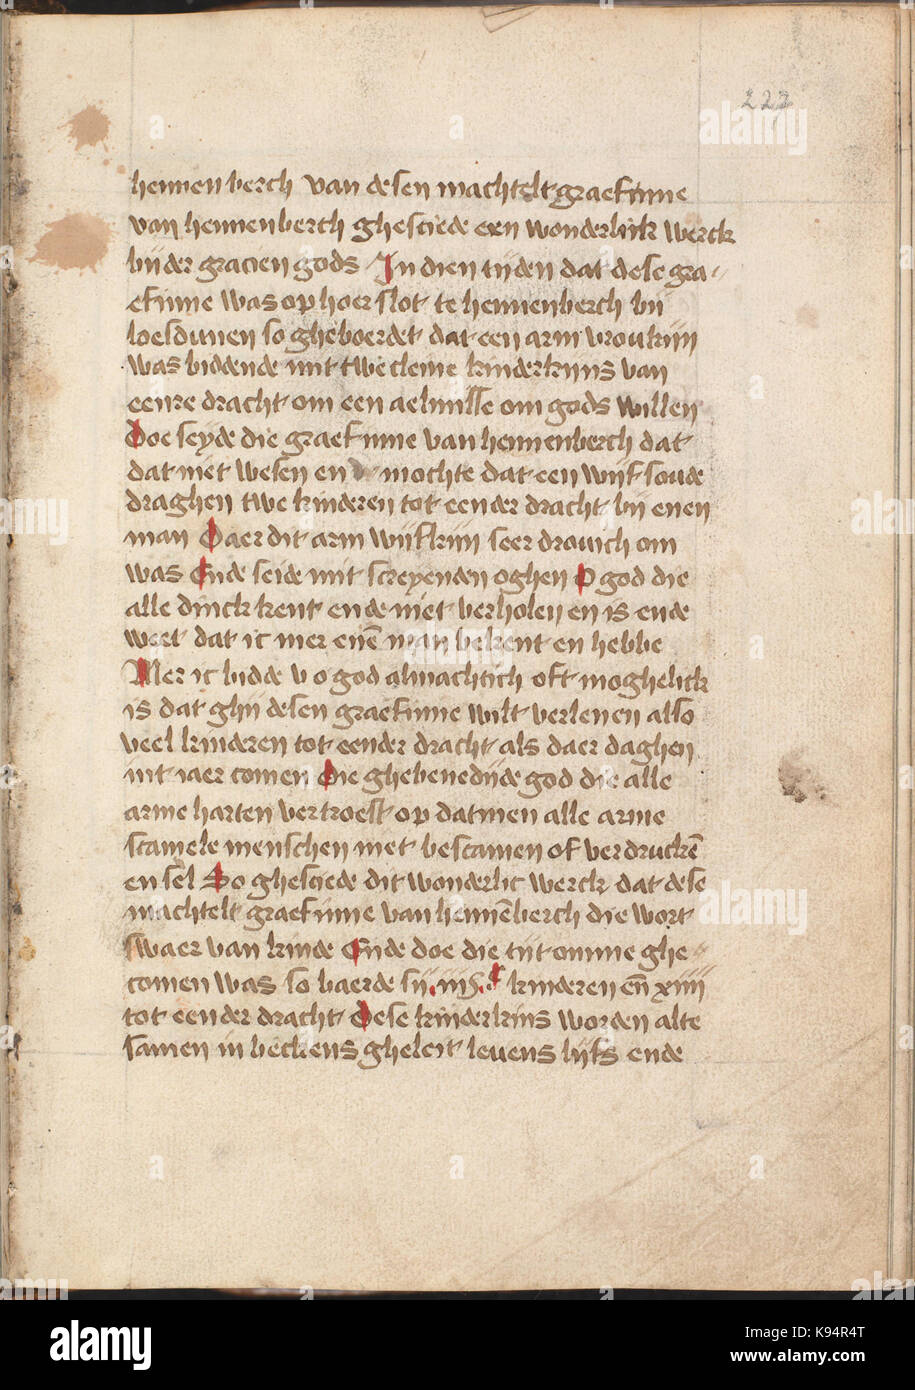 222
hennenberch van desen machtelt graefinne
van hennenberch ghesciede een wonderlick werck
bijder gracien gods In dien tijden dat dese gra-
efinne was op hoer slot te hennenberch bij
loesdunen so gheboerdet dat een arm vroukijn
was biddende mit twe cleine kinderkijns van
eenre dracht om een aelmisse om gods willen
Doe seyde die graefinne van hennenberch dat
dat niet wesen en mochte dat een wijf soude
draghen twe kinderen tot eender dracht bij enen
man Daer dit arm wijfkijn seer drouich om
was Ende seide mit screyenden oghen O god die
alle dinck kent ende niet verholen en is ende
weet dat ic mer enē man bekent en hebbe
Mer ic bidde v o god almachtich oft moghelick
is dat ghij desen graefinne wilt verlenen also
veel kinderen tot eender dracht als daer daghen
int iaer comen Die ghebenedijde god die alle
arme harten vertroest op datmen alle arme
scamele menschen niet bescamen of verdruckē
en sel So ghesciede dit wonderlic werck dat dese
machtelt graefinne van hennēberch die wort
swaer van kinde Ende doe die tijt omme ghe-
comen was so baerde sij iijc kinderen eñ xiiij
tot eender dracht Dese kinderkins worden alte
samen in beckens gheleit leuens lijfs ende
alamy
alamy
Image ID: K94R4T
www.alamy.com